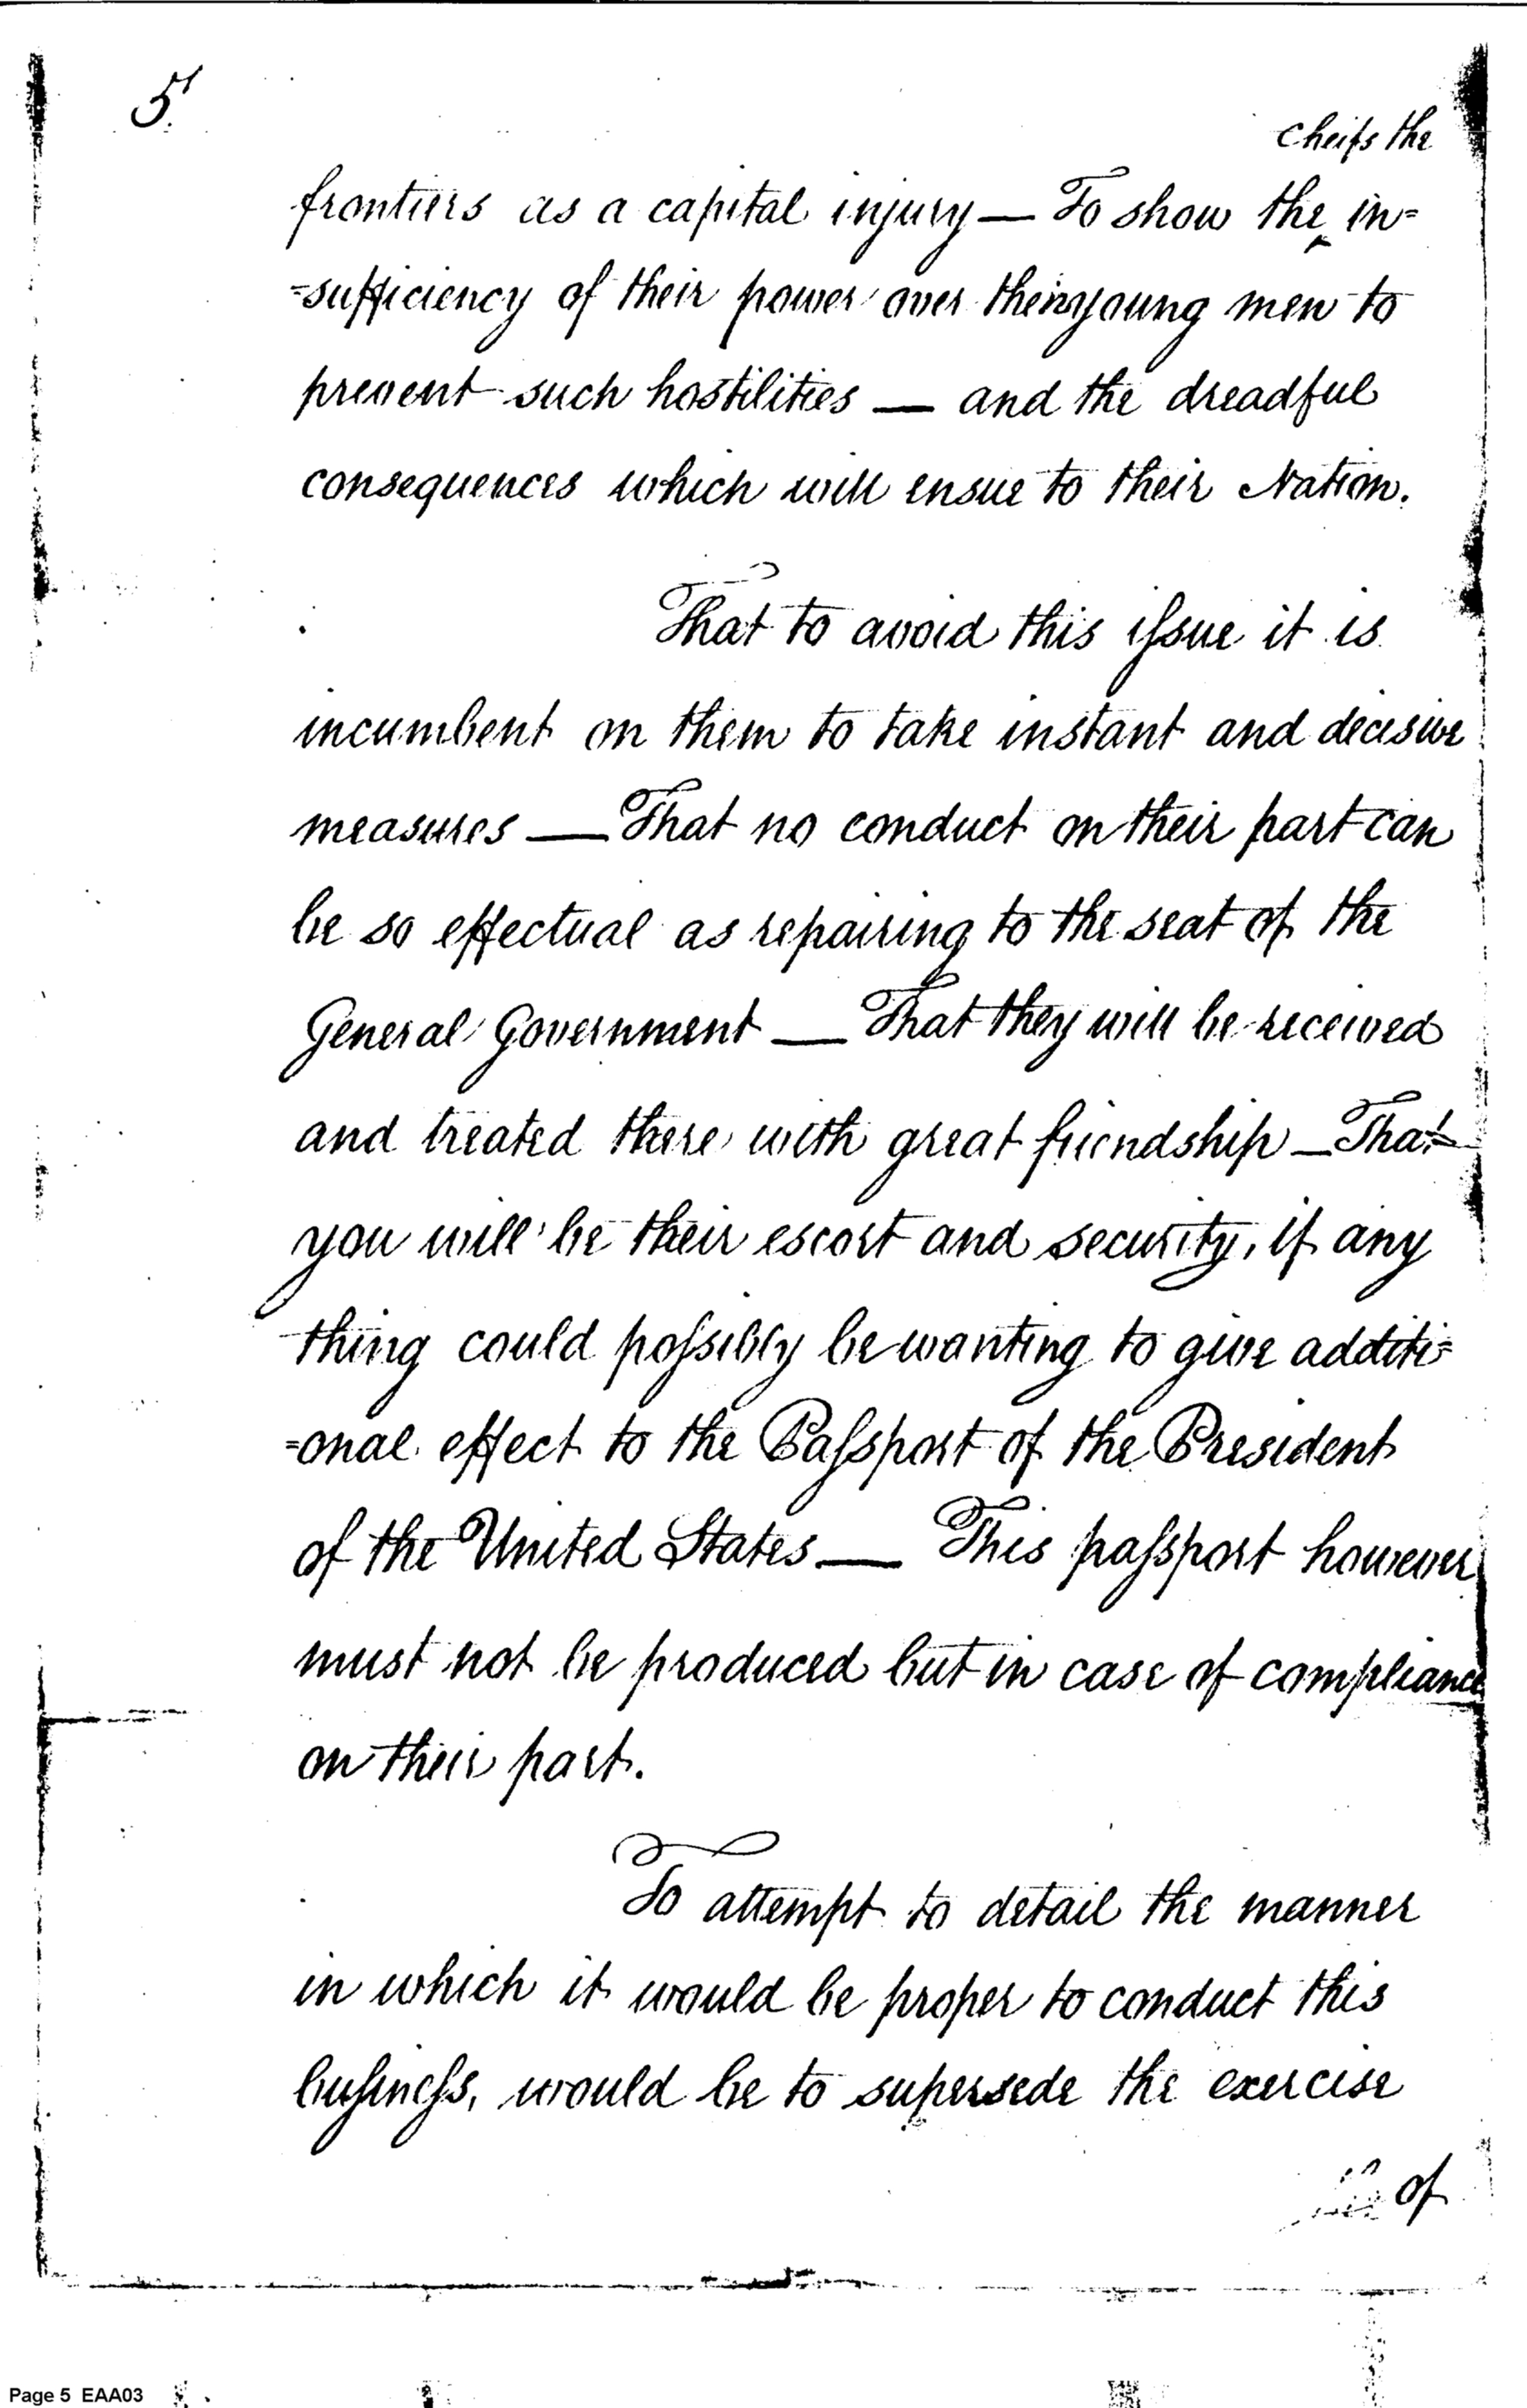 5.
cheifs the
frontiers as a capital injury — To show the ‸ in=
=sufficiency of their power over their young men to
prevent such hostilities — and the dreadful
consequences which will ensue to their Nation.
That to avoid this issue it is
incumbent on them to take instant and decisive
measures — That no conduct on their part can
be so effectual as repairing to the seat of the
General Government — That they will be received
and treated there with great friendship — That
you will be their escort and security, if any
thing could possibly be wanting to give additi=
=onal effect to the Passport of the President
of the United States — This passport however
must not be produced but in case of compliance
on their part.
To attempt to detail the manner
in which it would be proper to conduct this
business, would be to supersede the exercise
of
Page 5 EAA03